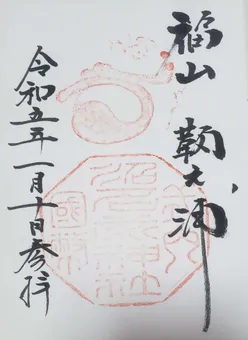 福山 鞆之浦
令和五年一月十日参拝
國幣